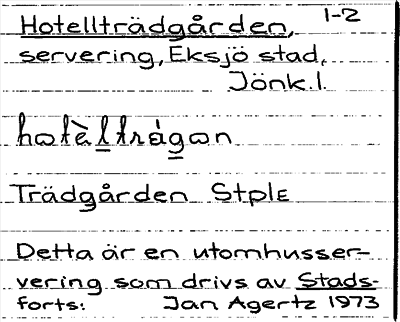 Hotellträdgården, 1-2
servering, Eksjö stad,
Jönk.l.
hotèlträgon
Trädgården StplE
Detta är en utomhusser-
vering som drivs av Stads-
forts: Jan Agertz 1973